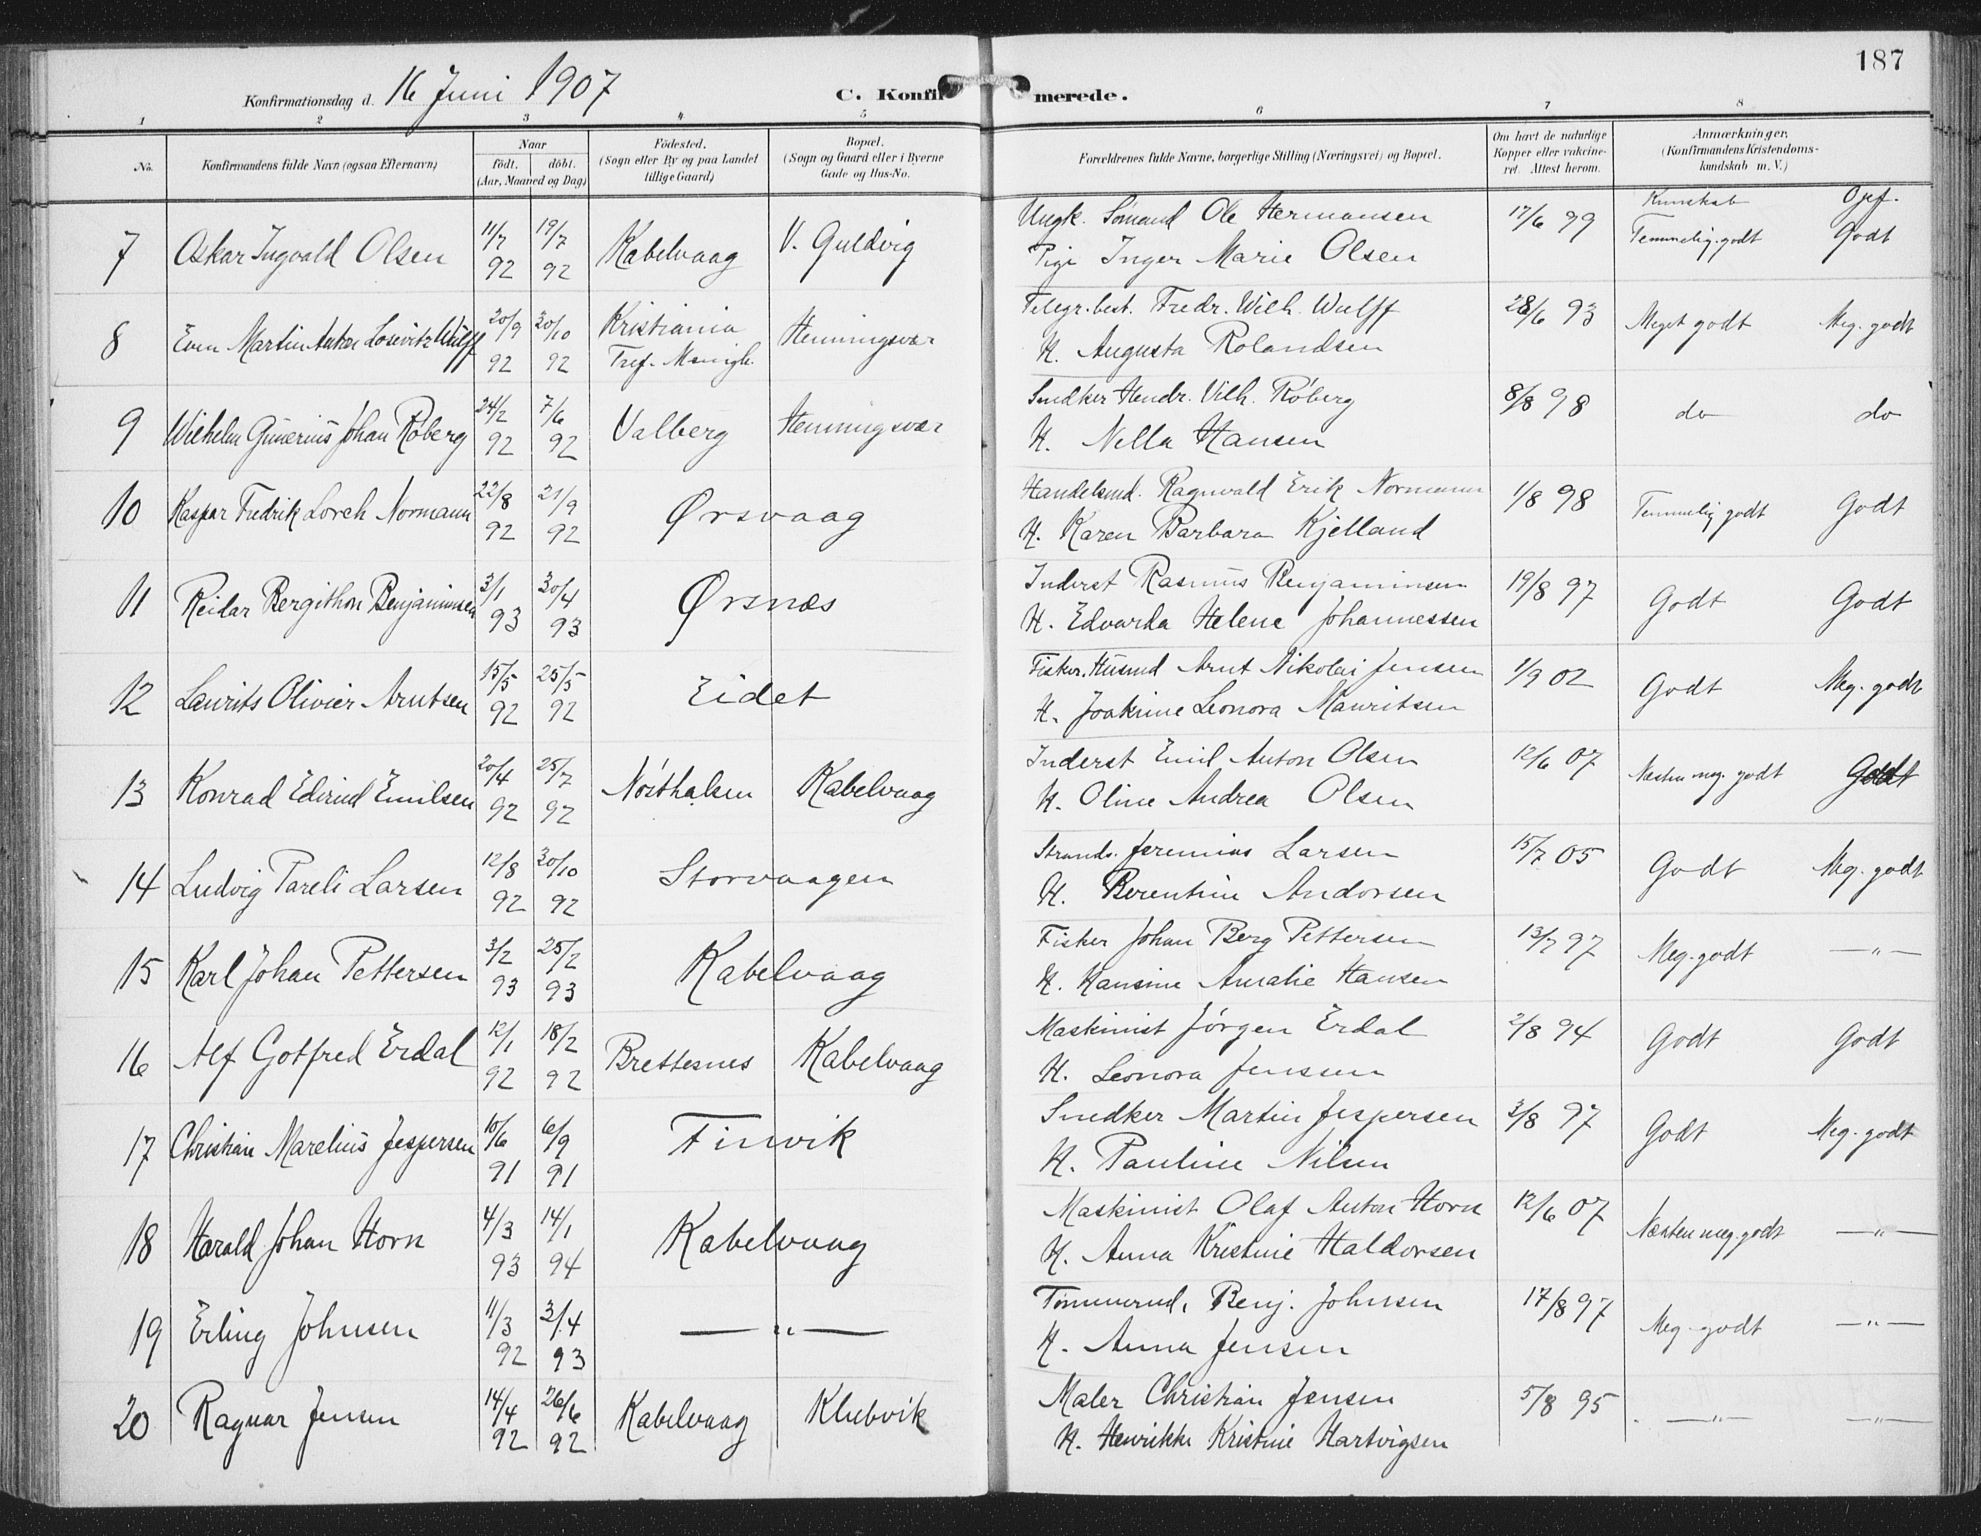 187
Konfirmationsdag d. 16 Juni 1907
C. Konfirmerede.
1 2 3 4 5 6 7 8
No.
Konfirmandens fulde Navn (ogsaa Efternavn)
Naar
født. døbt.
(Aar, Maaned og Dag)
Fødested.
(Sogn eller By og paa Landet
tillige Gaard)
Bopæl.
(Sogn og Gaard eller i Byerne
Gade og Hus-No.
Forældrenes fulde Navne, borgerlige Stilling (Næringsvei) og Bopæl.
Om havt de naturlige
Kopper eller vakcine-
ret. Attest herom.
Anmærkninger.
(Konfirmandens Kristendoms-
kundskab m. V.)
Kunskab Opf.
7 Oskar Ingvald Olsen 11/7 92 19/7 92 Kabelvaag V. Guldvig
Ungk. Sömand Ole Hermansen 17/6 99 Temmelig godt Godt
Pige Inger Marie Olsen
8 Even Martin Anton Wulff 20/9 92 30/10 92 Kristiania Henningsvær
Telegr.best. Fredr. Wilh. Wulff 28/6 93 Meget godt Meg. godt
H. Augusta Rolandsen
9 Wilhelm Gunerius Johan Røberg 24/2 92 7/6 92 Valberg Henningsvær
Snedker Hendr. Vilh. Røberg 8/8 98 do do
H. Nella Hansen
10 Kaspar Fredrik Lorch Normann 22/8 92 21/9 92 Ørsvaag
Handelsmd. Ragnvald Erik Normann 1/8 98 Temmelig godt Godt
H. Karen Barbara Kjelland
11 Reidar Bergithon Benjaminsen 3/1 93 30/4 93 Ørsnæs
Inderst Rasmus Benjaminsen 19/8 97 Godt Godt
H. Edvarda Helene Johannessen
12 Laurits Olivier Arntsen 15/5 92 25/5 92 Eidet
Fisker, Husmd Arnt Nikolai Jensen 1/9 02 Godt Meg. godt
H. Joakime Leonora Mauritsen
13 Konrad Edvind Emilsen 20/4 92 25/7 92 Kabelvaag
Inderst Emil Anton Olsen 12/6 07 Næsten meg. godt Godt
H. Oline Andrea Olsen
14 Ludvig Pareli Larsen 12/8 92 30/10 92 Storvaagen
Strands. Jeremias Larsen 15/7 05 Godt Meg. godt
H. Berentine Andorsen
15 Karl Johan Pettersen 3/2 93 25/2 93 Kabelvaag
Fisker Johan Berg Pettersen 13/7 97 Meg. godt — „ —
H. Hansine Amalie Hansen
16 Alf Gotfred Erdal 12/1 92 18/2 92 Brettesnes Kabelvaag
Maskinist Jörgen Erdal 2/8 94 Godt Godt
H. Leonora Jenssen
17 Christian Marelius Jespersen 10/6 91 6/9 91 Finvik
Snedker Martin Jespersen 3/8 97 Godt Meg. godt
H. Pauline Nilsen
18 Harald Johan Horn 4/3 93 14/1 94 Kabelvaag
Maskinist Olaf Anton Horn 12/6 07 Næsten meg. godt — „ —
H. Anna Kristine Haldorsen
19 Erling Johnsen 11/3 92 3/4 93 — „ —
Tömmermd. Benj. Johnsen 17/8 97 Meg. godt — „ —
H. Anna Jensen
20 Ragnar Jensen 14/4 92 26/6 92 Kabelvaag Klubvik
Maler Christian Jensen 5/8 95 — „ — — „ —
H. Henrikke Kristine Hartvigsen